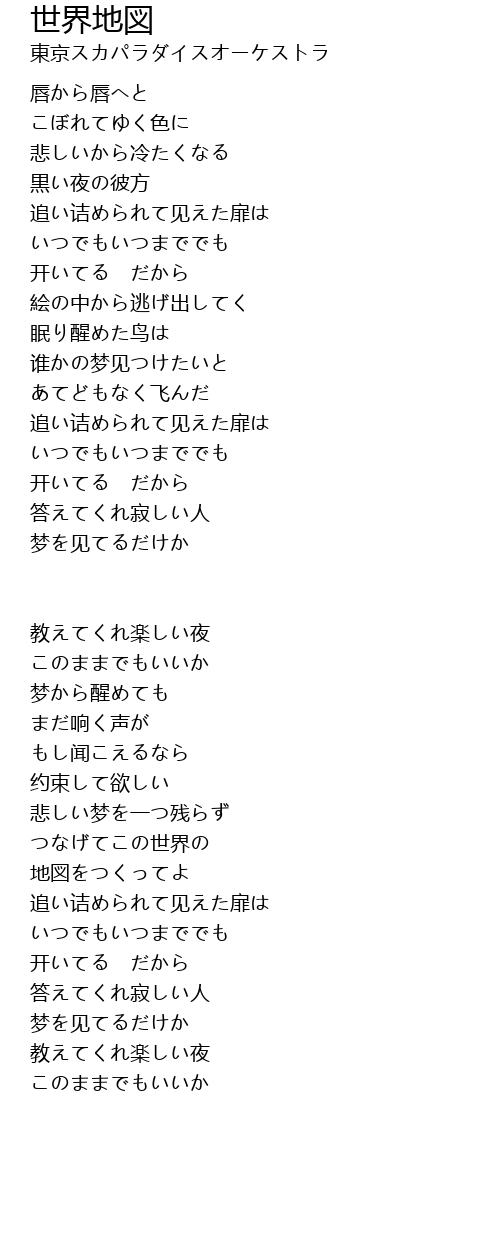 世界地図
東京スカパラダイスオーケストラ
唇から唇へと
こぼれてゆく色に
悲しいから冷たくなる
黒い夜の彼方
追い诘められて见えた扉は
いつでもいつまででも
开いてる　だから
絵の中から逃げ出してく
眠り醒めた鸟は
谁かの梦见つけたいと
あてどもなく飞んだ
追い诘められて见えた扉は
いつでもいつまででも
开いてる　だから
答えてくれ寂しい人
梦を见てるだけか
教えてくれ楽しい夜
このままでもいいか
梦から醒めても
まだ响く声が
もし闻こえるなら
约束して欲しい
悲しい梦を一つ残らず
つなげてこの世界の
地図をつくってよ
追い诘められて见えた扉は
いつでもいつまででも
开いてる　だから
答えてくれ寂しい人
梦を见てるだけか
教えてくれ楽しい夜
このままでもいいか